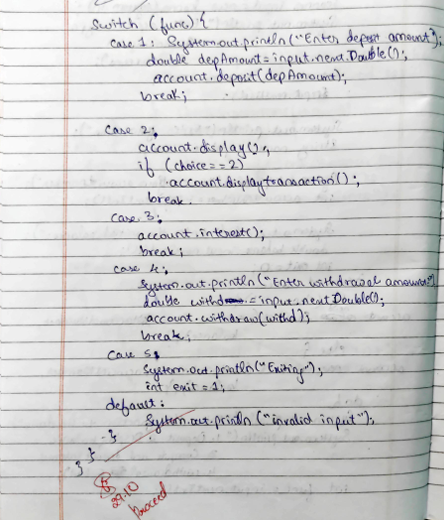 switch (func) {
case 1: System.out.println("Enter deposit amount");
double depAmount = input.next.Double();
account.deposit(depAmount);
break;
case 2;
account.display();
if (choice == 2)
account.displaytransaction();
break.
case 3;
account.interest();
break;
case 4;
System.out.println("Enter withdrawal amount")
double withd = input.next Double();
account.withdraw(withd);
break;
case 5;
System.out.println("Exiting");
int exit = 1;
default:
System.out.println ("invalid input");
}
}
}
29.10
proceed